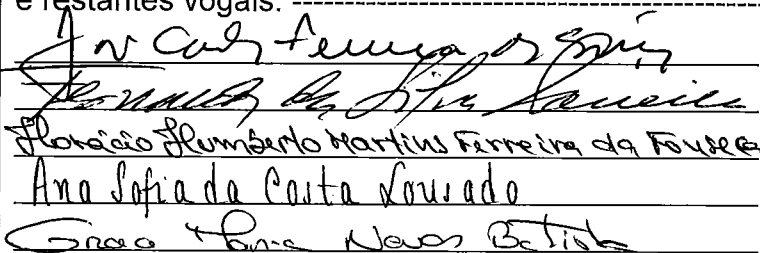 e restantes vogais. ------------------------------------------
José Carlos Ferreira
da Silva
Horácio Humberto Martins Ferreira da Fonseca
Ana Sofia da Costa Lousado
Graça Maria Neves Batista